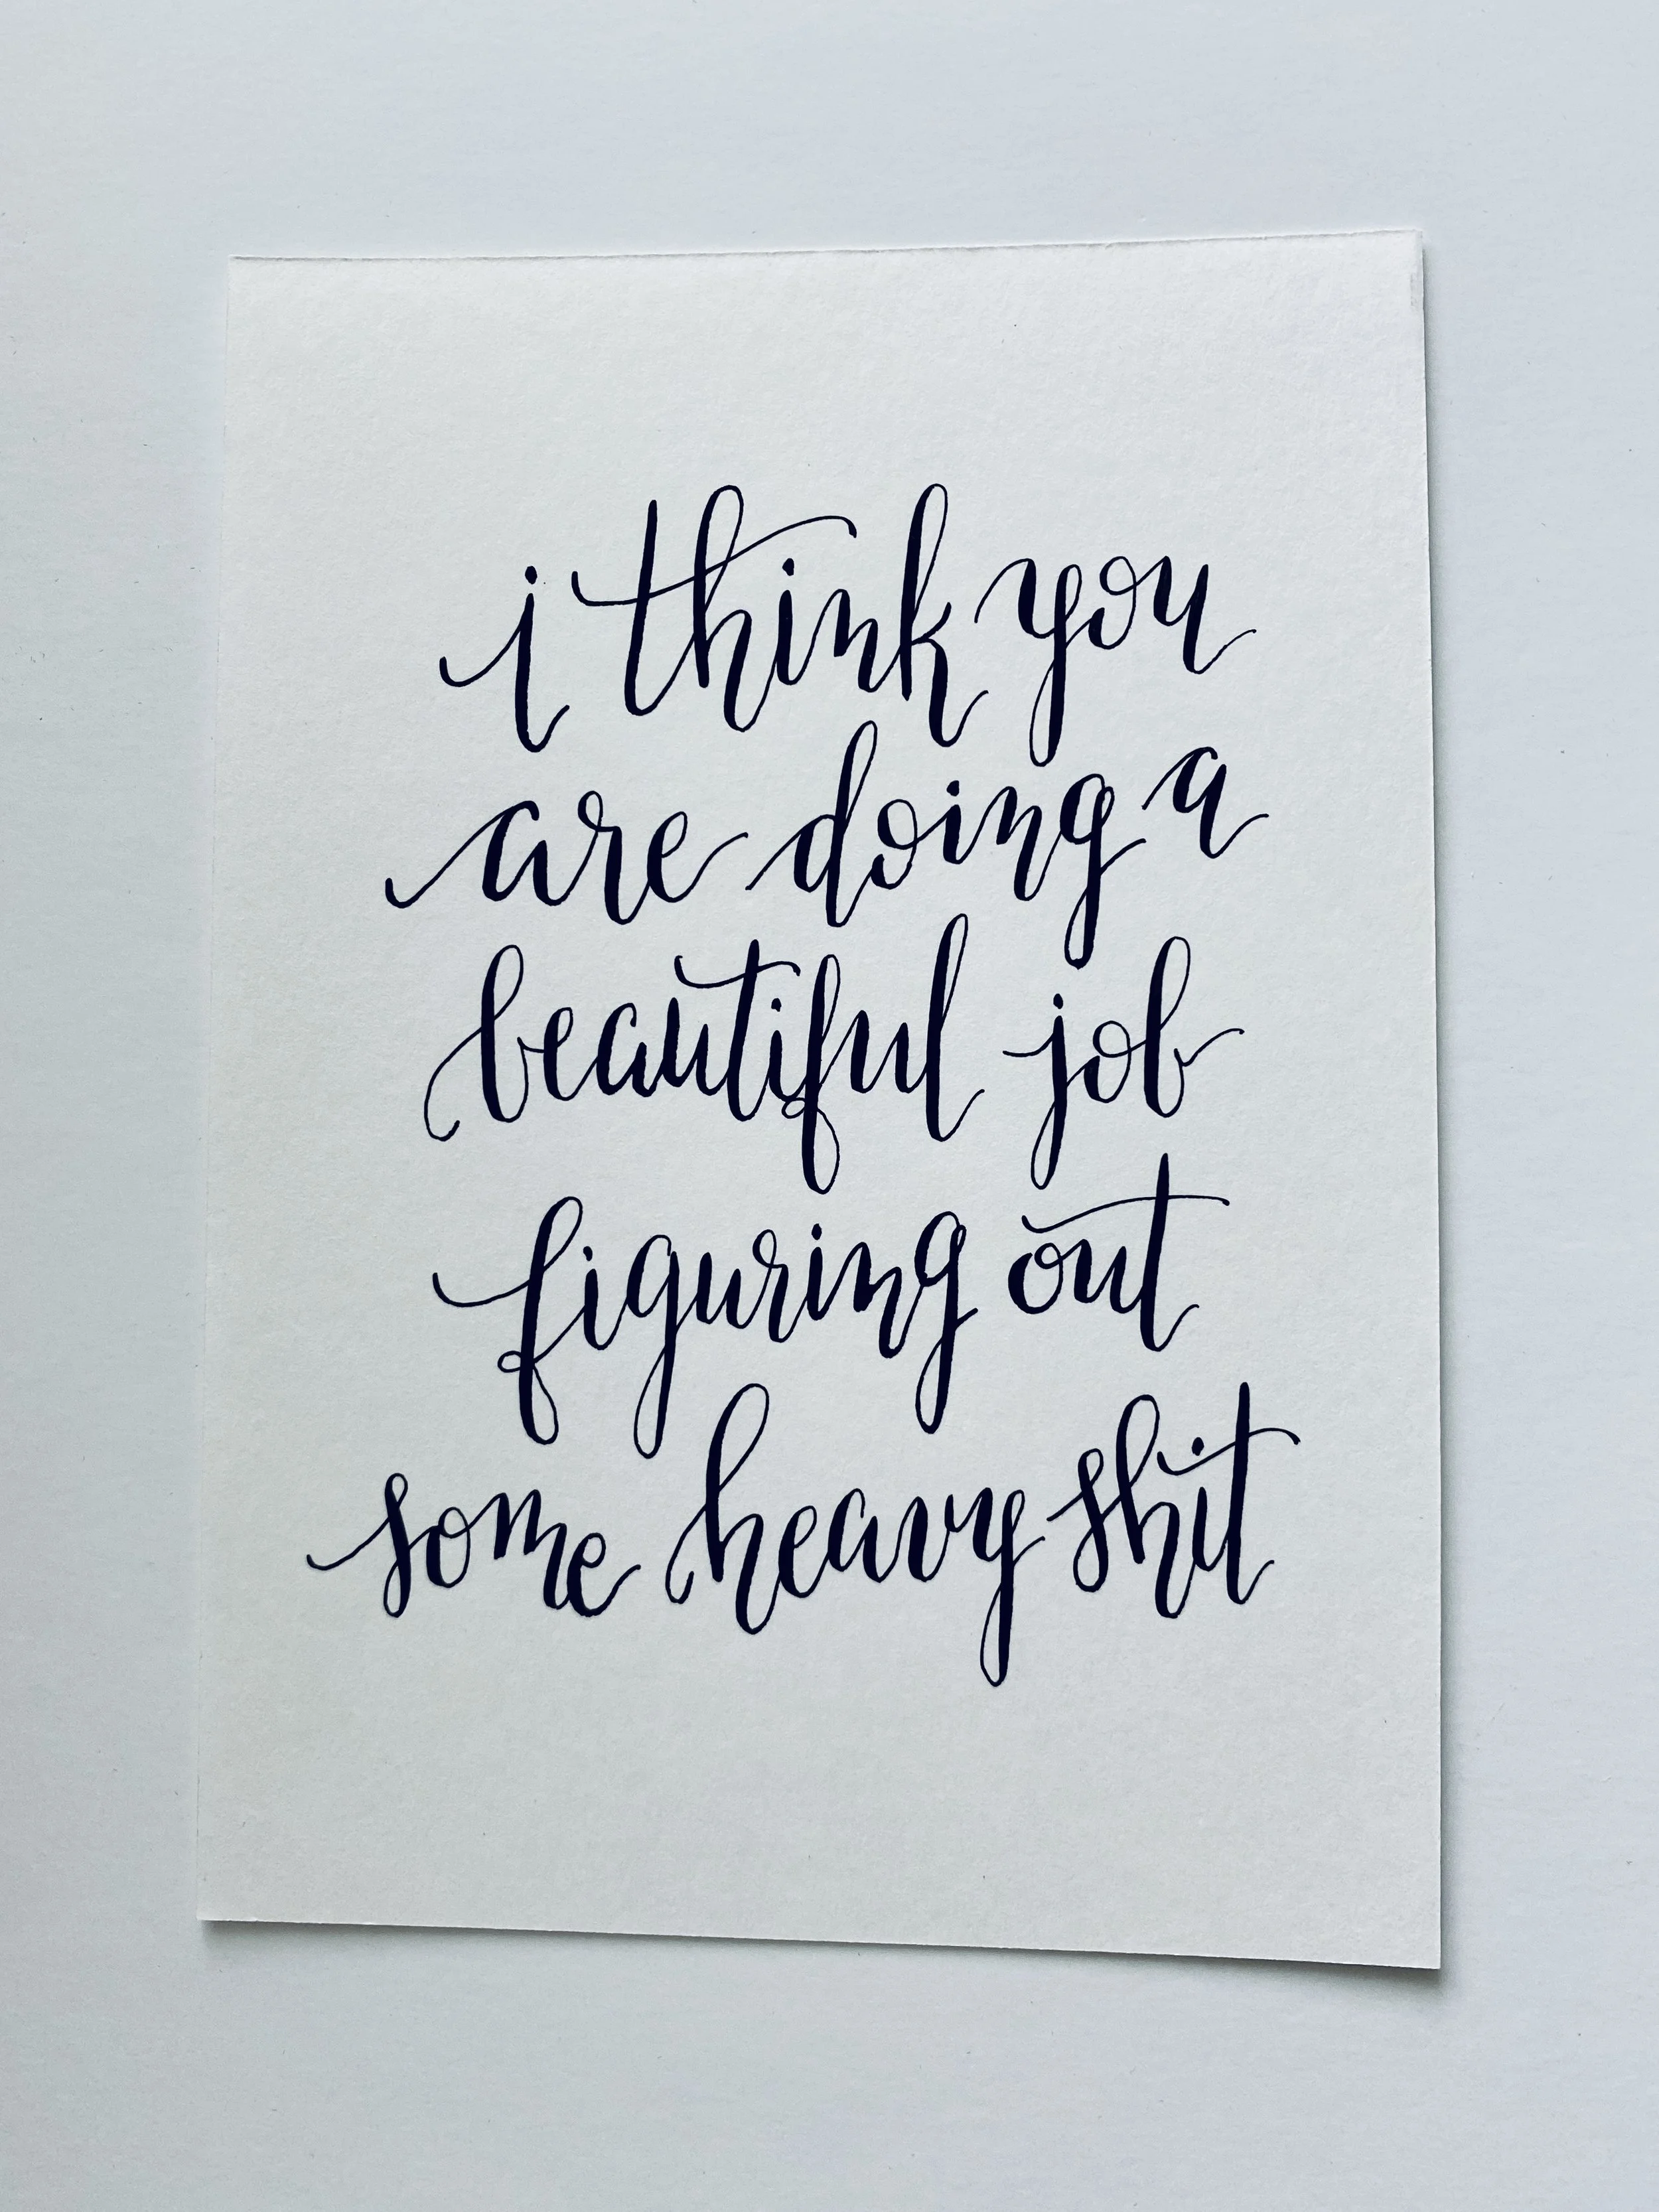 i think you
are doing a
beautiful job
figuring out
some heavy shit